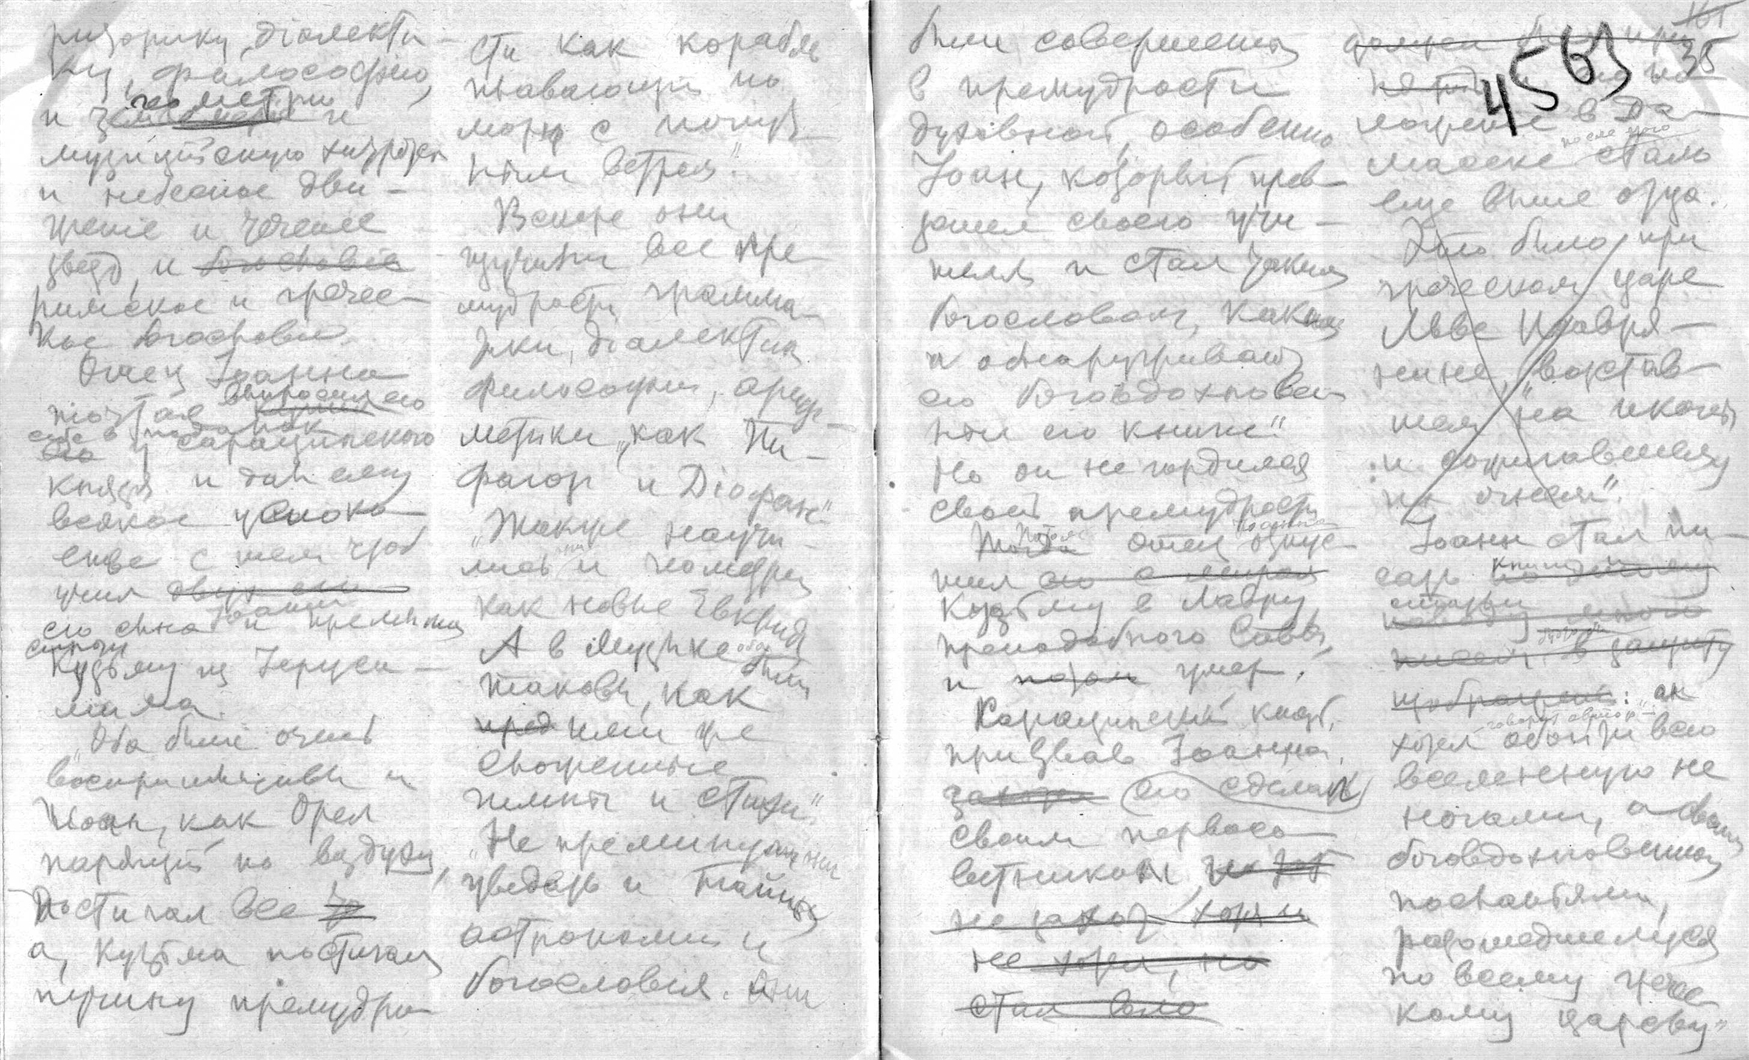 риторику, дiалекти-
ку, философию,
и геометрию и
музицiйскую хитрость
и небесное дви-
женiе и теченiе
звезд, и богословiе
римское и гречес-
кое богословiе.
Отец Iоанна
тотчас выпросил его
себе в подарок
у сарацинского
князя и дал ему
всякое успоко-
енiе с тем чтоб
учил двух
его сына Iоанна и прiемыша
сироту
Кузьму из Iеруса-
лима.
"Оба были очень
воспрiимчивы и
Иоан, как Орел
парящiй по воздуху,
постигал все
а, Кузьма постигал
пучину премудро-
сти как корабль
плавающiй по
морю с попут-
ным ветром."
Вскоре они
изучили все пре-
мудрости грамма-
тики, дiалектики
философии, ариф-
метики "как Пи-
фагор и Дiофан"
"Также научи-
лись они и геометрии
как новые Евклиды
А в музыке оба были
таковы, как
ими уже
сложенные
гимны и стихи"
"Не преминули они
уведать и тайны
астрономии и
богословия. Они
были совершенны
в премудрости
духовной, особенно
Iоан, который прев-
зошел своего учи-
теля и стал таким
богословом, каким
и обнаруживают
его боговдохновен-
ные его книги"
Но он не гордился
своей премудростью
Тогда Потом отец отпус-
тил его с миром
Кузьму в Лавру
преподобного Савы,
и потом умер.
Сарацинскiй князь,
призвав Iоанна,
его сделал
своим первосо-
ветником
не хотел, но
стал
4563
35
ложенiе в Да-
маске после этого стало
еще выше отца.
Это было при
греческом царе
Льве Исавря-
нине, "востав-
шем на иконы
и сожигавшему
их огнем".
Iоанн стал пи-
сать книги
в защиту
изображенiй: он
"говорит автор"
хотел обойти всю
вселенную не
ногами, а своими
боговдохновенными
посланiями,
разошедшемуся
по всему гречес-
кому царству"